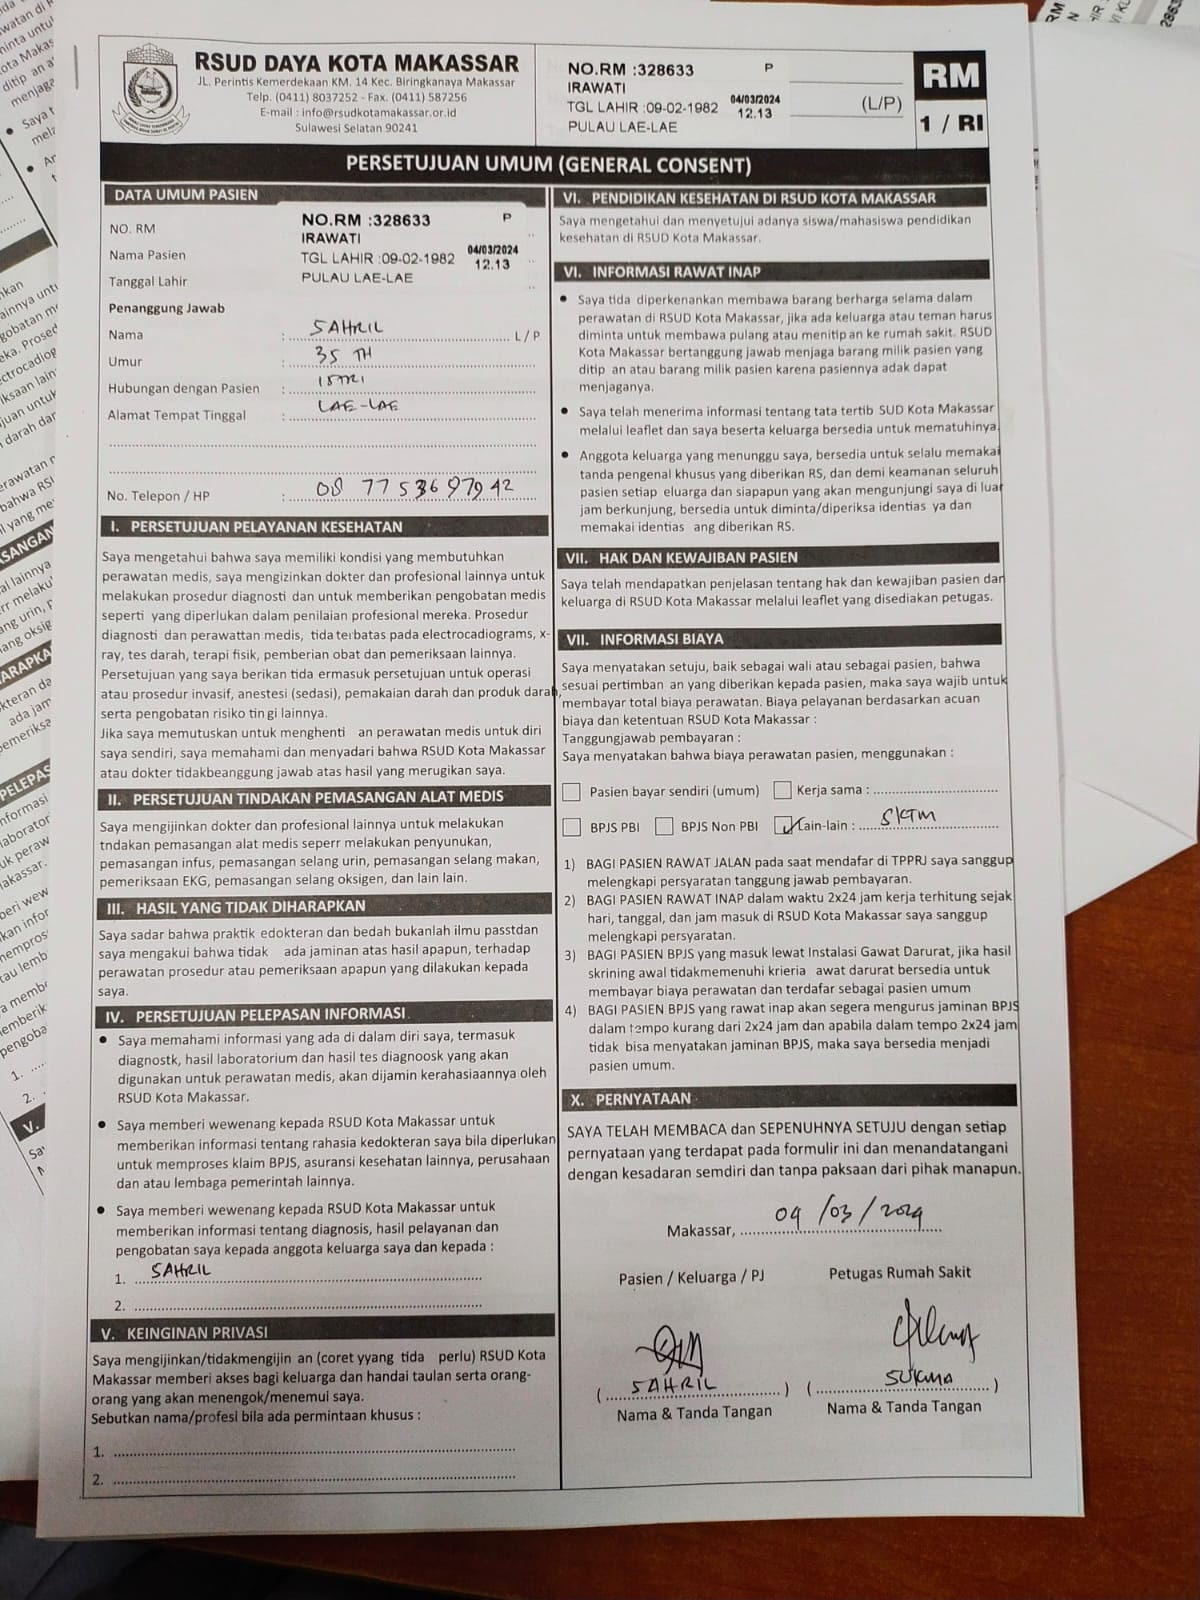 RSUD DAYA KOTA MAKASSAR
JL. Perintis Kemerdekaan KM. 14 Kec. Biringkanaya Makassar
Telp. (0411) 8037252 - Fax. (0411) 587256
E-mail : info@rsudkotamakassar.or.id
Sulawesi Selatan 90241
NO.RM :328633 P
IRAWATI
TGL LAHIR :09-02-1982 04/03/2024 12.13
PULAU LAE-LAE
(L/P)
RM
1 / RI
PERSETUJUAN UMUM (GENERAL CONSENT)
DATA UMUM PASIEN
NO. RM
Nama Pasien
Tanggal Lahir
NO.RM :328633 P
IRAWATI
TGL LAHIR :09-02-1982 04/03/2024 12.13
PULAU LAE-LAE
Penanggung Jawab
Nama : SAHRIL L / P
Umur : 35 TH
Hubungan dengan Pasien : ISTRI
Alamat Tempat Tinggal : LAE-LAE
No. Telepon / HP : 08 77 53697942
I. PERSETUJUAN PELAYANAN KESEHATAN
Saya mengetahui bahwa saya memiliki kondisi yang membutuhkan
perawatan medis, saya mengizinkan dokter dan profesional lainnya untuk
melakukan prosedur diagnosti dan untuk memberikan pengobatan medis
seperti yang diperlukan dalam penilaian profesional mereka. Prosedur
diagnosti dan perawattan medis, tida terbatas pada electrocadiograms, x-
ray, tes darah, terapi fisik, pemberian obat dan pemeriksaan lainnya.
Persetujuan yang saya berikan tida ermasuk persetujuan untuk operasi
atau prosedur invasif, anestesi (sedasi), pemakaian darah dan produk darah,
serta pengobatan risiko tin gi lainnya.
Jika saya memutuskan untuk menghenti an perawatan medis untuk diri
saya sendiri, saya memahami dan menyadari bahwa RSUD Kota Makassar
atau dokter tidakbeanggung jawab atas hasil yang merugikan saya.
II. PERSETUJUAN TINDAKAN PEMASANGAN ALAT MEDIS
Saya mengijinkan dokter dan profesional lainnya untuk melakukan
tndakan pemasangan alat medis seperr melakukan penyunukan,
pemasangan infus, pemasangan selang urin, pemasangan selang makan,
pemeriksaan EKG, pemasangan selang oksigen, dan lain lain.
III. HASIL YANG TIDAK DIHARAPKAN
Saya sadar bahwa praktik edokteran dan bedah bukanlah ilmu passtdan
saya mengakui bahwa tidak ada jaminan atas hasil apapun, terhadap
perawatan prosedur atau pemeriksaan apapun yang dilakukan kepada
saya.
IV. PERSETUJUAN PELEPASAN INFORMASI
• Saya memahami informasi yang ada di dalam diri saya, termasuk
diagnostk, hasil laboratorium dan hasil tes diagnoosk yang akan
digunakan untuk perawatan medis, akan dijamin kerahasiaannya oleh
RSUD Kota Makassar.
• Saya memberi wewenang kepada RSUD Kota Makassar untuk
memberikan informasi tentang rahasia kedokteran saya bila diperlukan
untuk memproses klaim BPJS, asuransi kesehatan lainnya, perusahaan
dan atau lembaga pemerintah lainnya.
• Saya memberi wewenang kepada RSUD Kota Makassar untuk
memberikan informasi tentang diagnosis, hasil pelayanan dan
pengobatan saya kepada anggota keluarga saya dan kepada :
1. SAHRIL
2.
V. KEINGINAN PRIVASI
Saya mengijinkan/tidakmengijin an (coret yyang tida perlu) RSUD Kota
Makassar memberi akses bagi keluarga dan handai taulan serta orang-
orang yang akan menengok/menemui saya.
Sebutkan nama/profesi bila ada permintaan khusus :
1.
2.
VI. PENDIDIKAN KESEHATAN DI RSUD KOTA MAKASSAR
Saya mengetahui dan menyetujui adanya siswa/mahasiswa pendidikan
kesehatan di RSUD Kota Makassar.
VI. INFORMASI RAWAT INAP
• Saya tida diperkenankan membawa barang berharga selama dalam
perawatan di RSUD Kota Makassar, jika ada keluarga atau teman harus
diminta untuk membawa pulang atau menitip an ke rumah sakit. RSUD
Kota Makassar bertanggung jawab menjaga barang milik pasien yang
ditip an atau barang milik pasien karena pasiennya adak dapat
menjaganya.
• Saya telah menerima informasi tentang tata tertib SUD Kota Makassar
melalui leaflet dan saya beserta keluarga bersedia untuk mematuhinya.
• Anggota keluarga yang menunggu saya, bersedia untuk selalu memakai
tanda pengenal khusus yang diberikan RS, dan demi keamanan seluruh
pasien setiap eluarga dan siapapun yang akan mengunjungi saya di luar
jam berkunjung, bersedia untuk diminta/diperiksa identias ya dan
memakai identias ang diberikan RS.
VII. HAK DAN KEWAJIBAN PASIEN
Saya telah mendapatkan penjelasan tentang hak dan kewajiban pasien dan
keluarga di RSUD Kota Makassar melalui leaflet yang disediakan petugas.
VII. INFORMASI BIAYA
Saya menyatakan setuju, baik sebagai wali atau sebagai pasien, bahwa
sesuai pertimban an yang diberikan kepada pasien, maka saya wajib untuk
membayar total biaya perawatan. Biaya pelayanan berdasarkan acuan
biaya dan ketentuan RSUD Kota Makassar :
Tanggungjawab pembayaran :
Saya menyatakan bahwa biaya perawatan pasien, menggunakan :
Pasien bayar sendiri (umum) Kerja sama :
BPJS PBI BPJS Non PBI Lain-lain : SKTM
1) BAGI PASIEN RAWAT JALAN pada saat mendafar di TPPRJ saya sanggup
melengkapi persyaratan tanggung jawab pembayaran.
2) BAGI PASIEN RAWAT INAP dalam waktu 2x24 jam kerja terhitung sejak
hari, tanggal, dan jam masuk di RSUD Kota Makassar saya sanggup
melengkapi persyaratan.
3) BAGI PASIEN BPJS yang masuk lewat Instalasi Gawat Darurat, jika hasil
skrining awal tidakmemenuhi krieria awat darurat bersedia untuk
membayar biaya perawatan dan terdafar sebagai pasien umum
4) BAGI PASIEN BPJS yang rawat inap akan segera mengurus jaminan BPJS
dalam tempo kurang dari 2x24 jam dan apabila dalam tempo 2x24 jam
tidak bisa menyatakan jaminan BPJS, maka saya bersedia menjadi
pasien umum.
X. PERNYATAAN
SAYA TELAH MEMBACA dan SEPENUHNYA SETUJU dengan setiap
pernyataan yang terdapat pada formulir ini dan menandatangani
dengan kesadaran semdiri dan tanpa paksaan dari pihak manapun.
Makassar, 04/03/2024
Pasien / Keluarga / PJ Petugas Rumah Sakit
( SAHRIL ) ( SUKMA )
Nama & Tanda Tangan Nama & Tanda Tangan